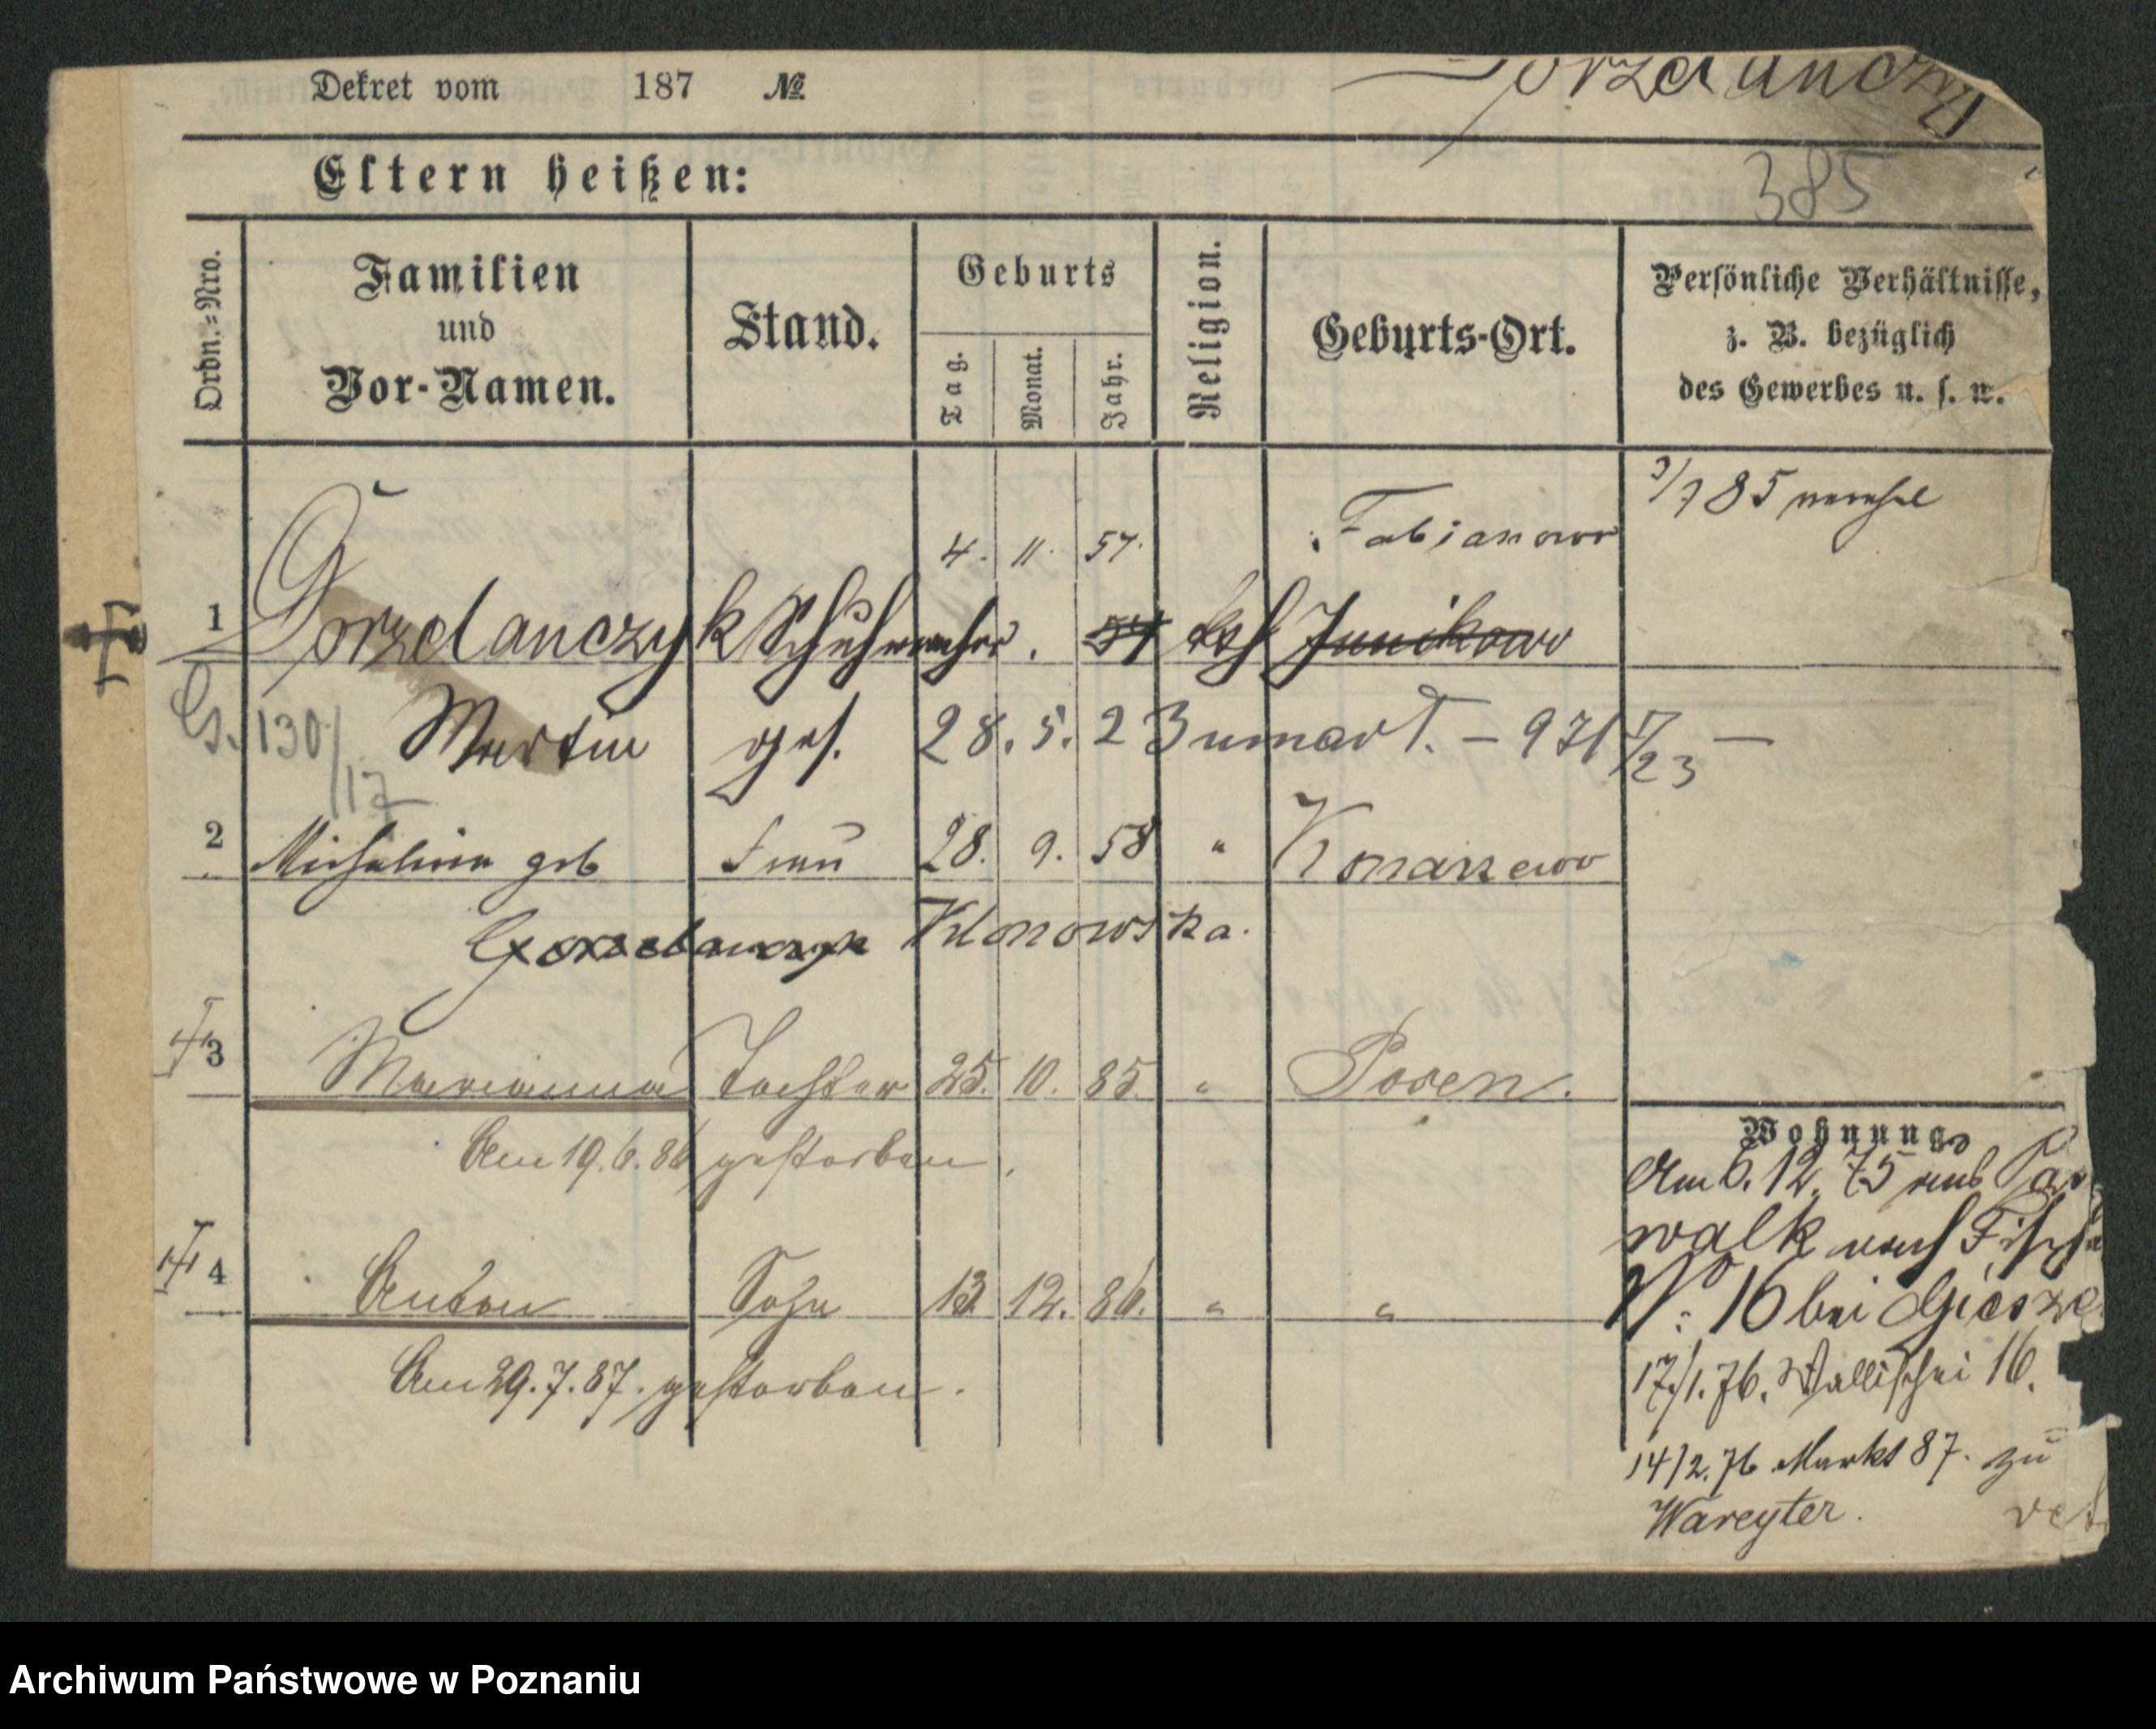 Dekret vom 187 №
Gorzelanczy
Eltern heißen:
385
Ordn.=Nro.
Familien
und
Vor-Namen.
Stand.
Geburts
Tag.
Monat.
Jahr.
Religion.
Geburts-Ort.
Persönliche Verhältnisse,
z. B. bezüglich
des Gewerbes u. s. w.
4. 11. 57. Fabianowo
1 Gorzelanczyk Schuhmacher. 54 kath Junikowo
G. 130/17
Martin gest. 28. 5. 23 umart. – 971 V/23 –
2 Michalina geb Frau 28. 9. 58 " Konarzewo
Gorzelanczyk Klonowska.
3 Marianna Tochter 25. 10. 85. " Posen.
Am 19.6.86 gestorben.
4 Anton Sohn 13. 12. 86. " "
Am 29.7.87. gestorben.
Wohnung
Am 6. 12. 75 aus
walk nach
No: 16 bei
17/1.76. Wallischei 16.
14/2.76 Markt 87. zu
Wareyter.